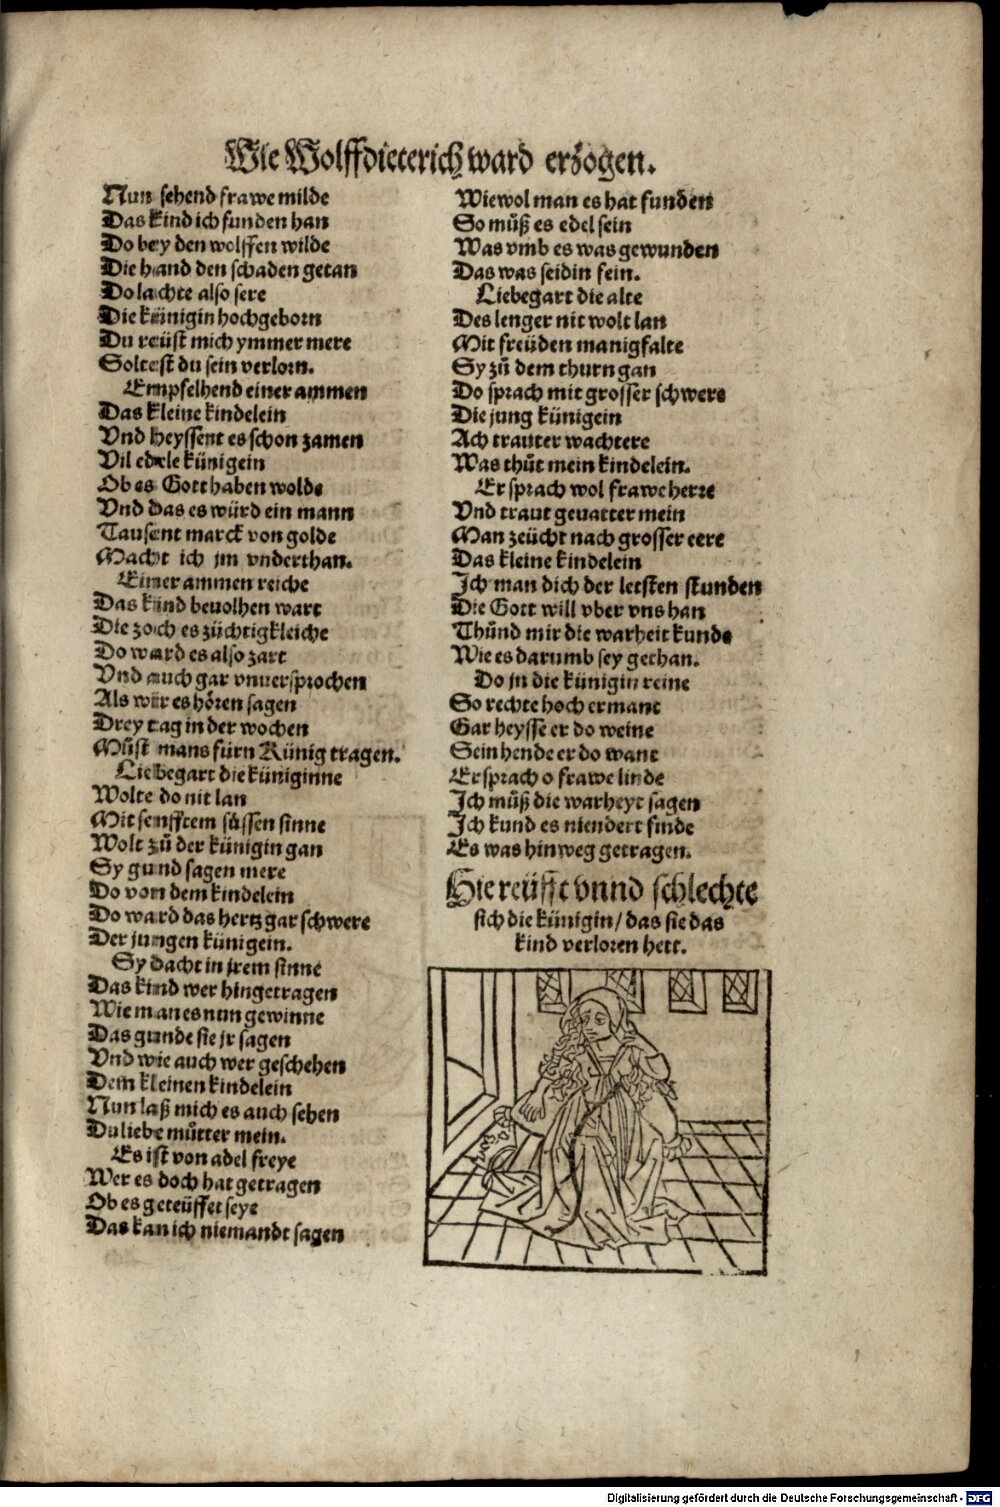 Wie Wolffdieterich ward erzogen.
Nun sehend frawe milde
Das kind ich funden han
Do bey den wolffen wilde
Die hand den schaden getan
Do lachte also sere
Die künigin hochgeborn
Du reüst mich ymmer mere
Soltest du sein verlorn.
Empfelhend einer ammen
Das kleine kindelein
Vnd heyssent es schon zamen
Vil edele künigein
Ob es Gott haben wolde
Vnd das es würd ein mann
Tausent marck von golde
Macht ich jm vnderthan.
Einer ammen reiche
Das kind beuolhen wart
Die zoch es züchtigkleiche
Do ward es also zart
Vnd auch gar vnuersprochen
Als wir es hören sagen
Drey tag in der wochen
Můst mans fürn Künig tragen.
Liebegart die küniginne
Wolte do nit lan
Mit senfftem süssen sinne
Wolt zů der künigin gan
Sy gund sagen mere
Do von dem kindelein
Do ward das hertz gar schwere
Der jungen künigein.
Sy dacht in jrem sinne
Das kind wer hingetragen
Wie man es nun gewinne
Das gunde sie jr sagen
Vnd wie auch wer geschehen
Dem kleinen kindelein
Nun laß mich es auch sehen
Du liebe můtter mein.
Es ist von adel freye
Wer es doch hat getragen
Ob es geteüffet seye
Das kan ich niemandt sagen
Wiewol man es hat funden
So můß es edel sein
Was vmb es was gewunden
Das was seidin fein.
Liebegart die alte
Des lenger nit wolt lan
Mit freüden manigfalte
Sy zů dem thurn gan
Do sprach mit grosser schwere
Die jung künigein
Ach trauter wachtere
Was thůt mein kindelein.
Er sprach wol frawe herre
Vnd traut geuatter mein
Man zeücht nach grosser eere
Das kleine kindelein
Ich man dich der letsten stunden
Die Gott will vber vns han
Thůnd mir die warheit kunde
Wie es darumb sey gethan.
Do jn die künigin reine
So rechte hoch ermant
Gar heysse er do weine
Sein hende er do want
Er sprach o frawe linde
Ich můß die warheyt sagen
Ich kund es niendert finde
Es was hinweg getragen.
Hie reüfft vnnd schlechte
sich die künigin / das sie das
kind verloren hett.
Digitalisierung gefördert durch die Deutsche Forschungsgemeinschaft - DFG